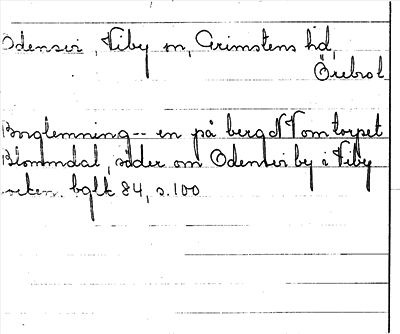 Odensvi, Viby sn, Grimstens hd,
Örebro l
Borglemning -- en på berg NV om torpet
Blommdal, söder om Odensvi by i Viby
socken. bglt 84, s.100